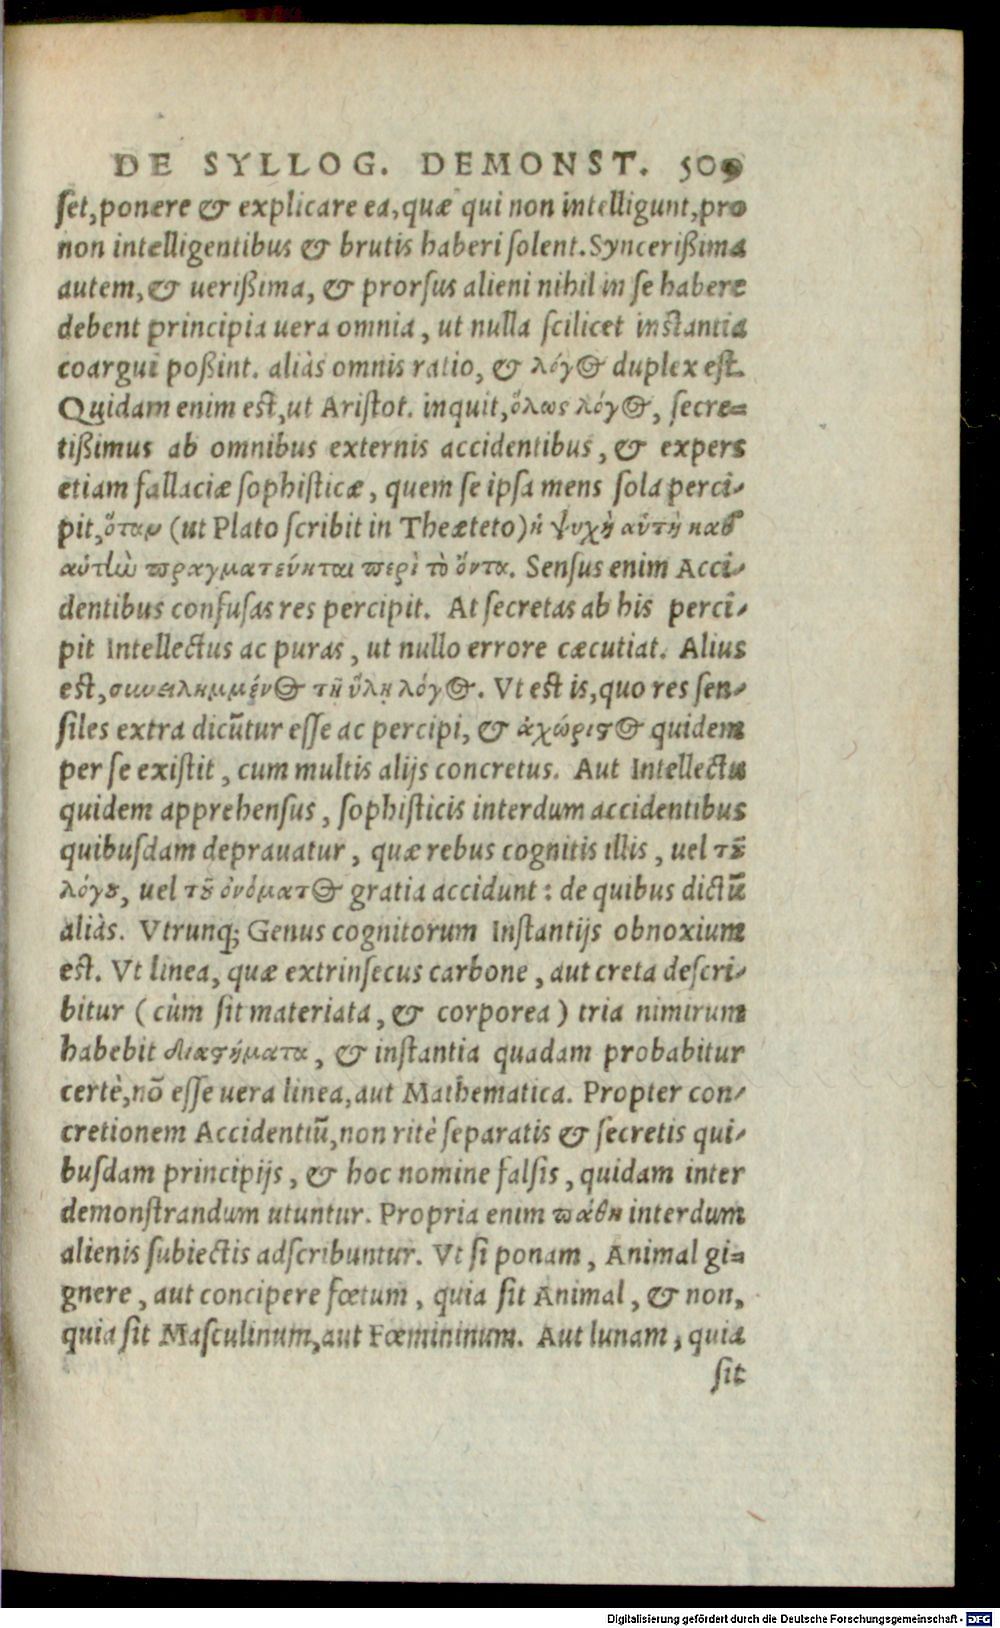 DE SYLLOG. DEMONST. 509
ſet, ponere & explicare ea, quæ qui non intelligunt, pro
non intelligentibus & brutis haberi ſolent. Syncerißima
autem, & ueriſsima, & prorſus alieni nihil in ſe habere
debent principia uera omnia, ut nulla ſcilicet instantia
coargui poßint. aliàs omnis ratio, & λόγος duplex eſt.
Quidam enim est, ut Ariſtot. inquit, ὅλως λόγος, ſecre=
tißimus ab omnibus externis accidentibus, & expers
etiam fallaciæ ſophiſticæ, quem ſe ipſa mens ſola perci-
pit, ὅταν (ut Plato ſcribit in Theæteto) ἡ ψυχὴ αὐτὴ καθ'
αὑτὴν πραγματεύηται περὶ τὸ ὄντα. Senſus enim Acci-
dentibus confuſas res percipit. At ſecretas ab his perci-
pit Intellectus ac puras, ut nullo errore cæcutiat. Alius
est, συνειλημμένος τῇ ὕλῃ λόγος. Vt est is, quo res ſen-
ſiles extra dicūtur eſſe ac percipi, & ἀχώριστος quidem
per ſe exiſtit, cum multis alijs concretus. Aut Intellectu
quidem apprehenſus, ſophiſticis interdum accidentibus
quibuſdam deprauatur, quæ rebus cognitis illis, uel τοῦ
λόγου, uel τοῦ ὀνόματος gratia accidunt: de quibus dictū
aliàs. Vtrunq; Genus cognitorum Inſtantijs obnoxium
est. Vt linea, quæ extrinſecus carbone, aut creta deſcri-
bitur (cùm ſit materiata, & corporea) tria nimirum
habebit διαστήματα, & inſtantia quadam probabitur
certè, nō eſſe uera linea, aut Mathematica. Propter con-
cretionem Accidentiū, non ritè ſeparatis & ſecretis qui-
buſdam principijs, & hoc nomine falſis, quidam inter
demonſtrandum utuntur. Propria enim πάθη interdum
alienis ſubiectis adſcribuntur. Vt ſi ponam, Animal gi=
gnere, aut concipere fœtum, quia ſit Animal, & non,
quia ſit Maſculinum, aut Fœmininum. Aut lunam, quia
ſit
Digitalisierung gefördert durch die Deutsche Forschungsgemeinschaft - DFG